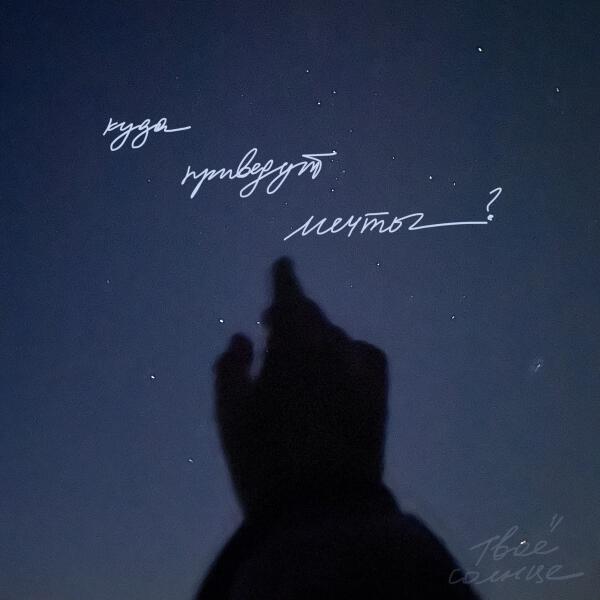 куда
приведут
мечты?
твоё"
солнце